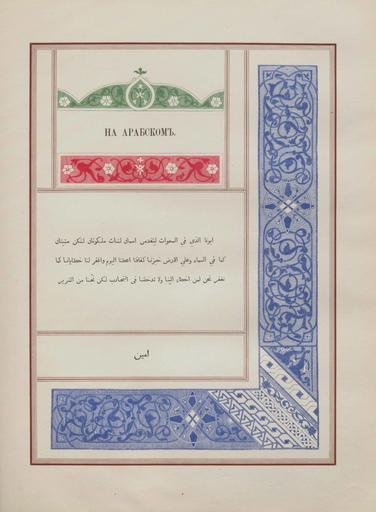 НА АРАБСКОМЪ.
ابونا الذي في السموات ليتقدس اسمك لتات ملكوتك لتكن مشيتك
كما في السماء وعلي الارض خبزنا كفافنا اعطنا اليوم واغفر لنا خطايانا كما
نغفر نحن لمن اخطاء الينا ولا تدخلنا في التجارب لكن نجنا من الشرير
امين